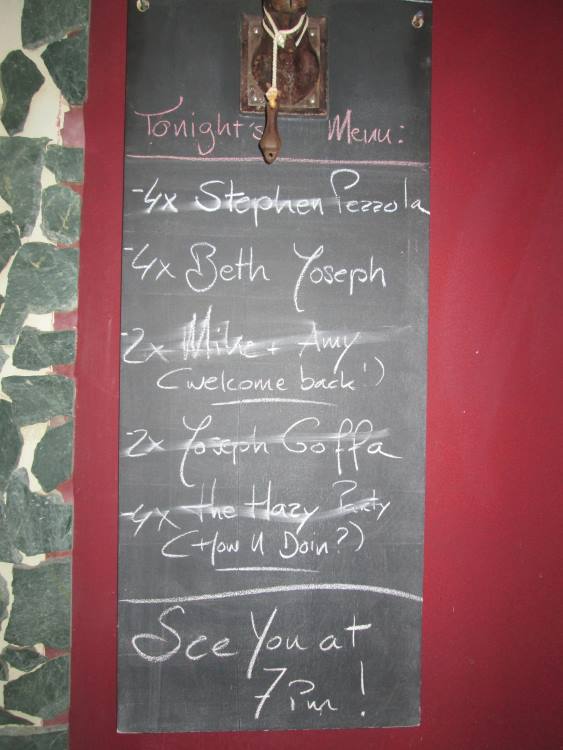 Tonight's Menu:
-4x Stephen Pezzola
-4x Beth Yoseph
-2x Mike + Amy
(welcome back!)
-2x Yoseph Goffa
-4x the Hazy Party
(How U Doin?)
See You at
7 Pm!